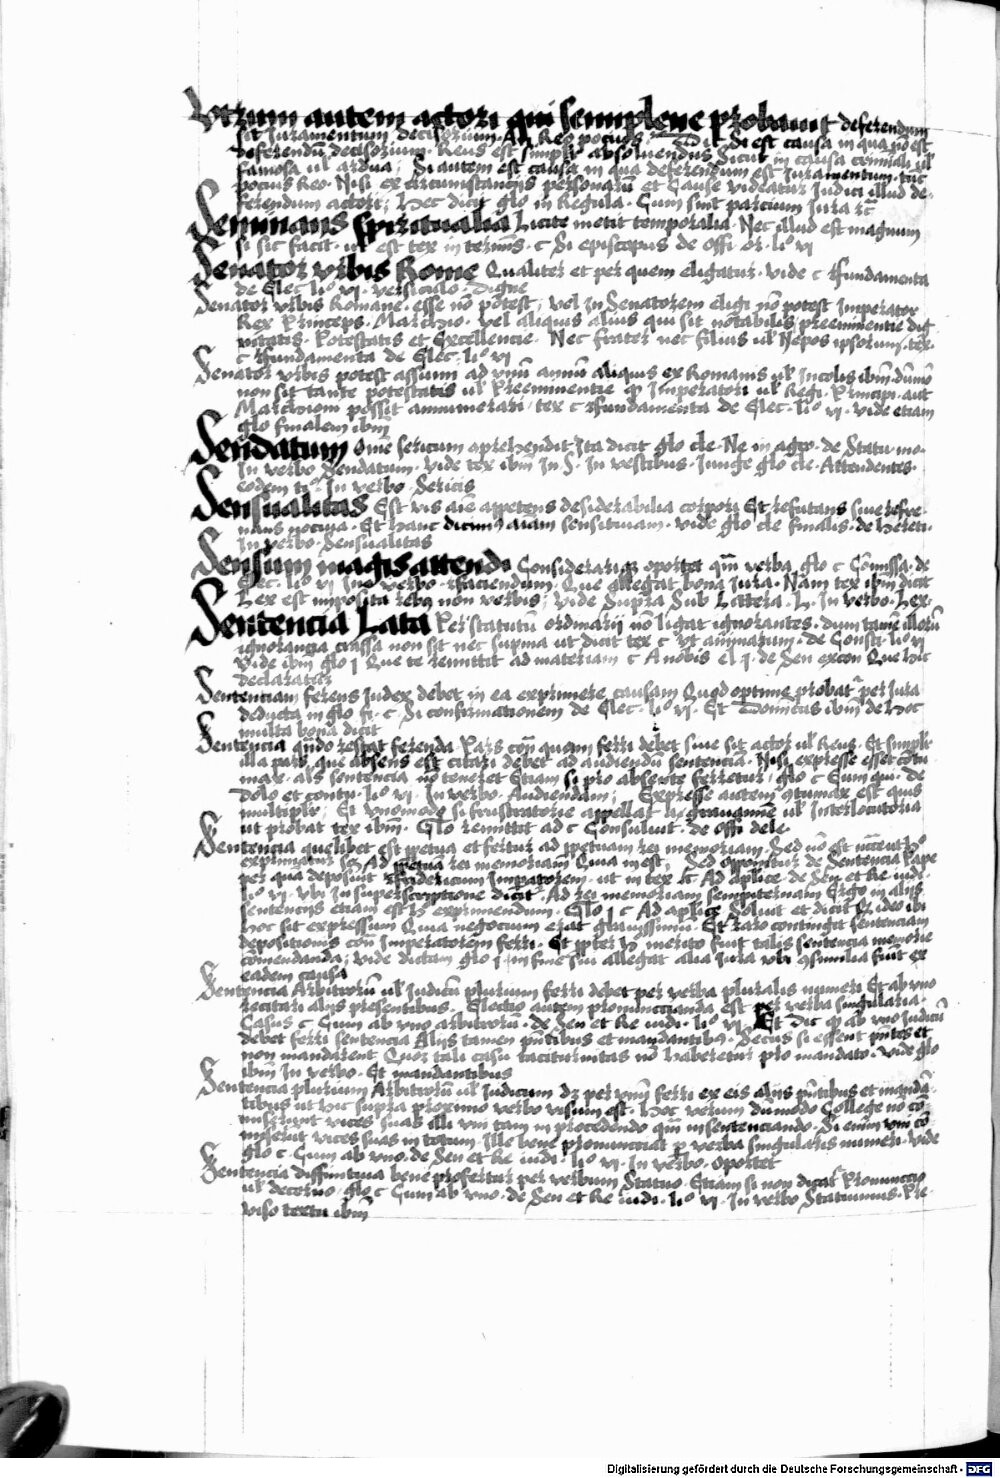 Utrum autem actori qui semiplene probavit deferendum
sit Juramentum decisorium. An Reo pocius. Dic Si est causa in qua nō est
deferendū decisorium. Reus est simplr absolvendus Sicut in causa criminali ul
famosa ul ardua; Si autem est causa in qua deferendum est Juramentum. tūc
pocius Reo. Nisi ex circumstancijs personarū et Cause videatur Judici illud de-
ferendum actori; Hec dicit glo in Regula. Cum sint parcium Jura rc̄
Seminans spiritualia Licite metit temporalia. Nec illud est magnum
si sic facit. ut est tex in terminis. c Si episcopus de offi. or. li° vi
Senator urbis Rome Qualiter et per quem eligatur. vide c Fundamenta
de Elec. li° vi. versiculo. Digne
Senator urbis Romane. esse nō potest; vel In Senatorem eligi nō potest Imperator
Rex Princeps. Marchio. vel aliquis alius qui sit notabilis preeminentie dig
nitatis. Potestatis et Excellencie. Nec frater nec filius ul Nepos ipsorum. tex.
c Fundamenta de Elec. li° vi
Senator urbis potest assumi ad unū annū aliquis ex Romanis ul Incolis ibm̄. dūmō
non sit tante potestatis ul Preeminentie qp Imperatori ul Regi. Principi. aut
Marchioni possit annumerari; tex c Fundamenta de Elec. li° vi. vide etiam
glo finalem ibm̄
Sendatum Omē sericum aprehendit Ita dicit glo cle. Ne in agro. de Statu mo.
In verbo Sendatum. vide tex ibm̄ In §. In vestibus. Iunge glo cle. Attendentes.
eodem ti° In verbo. Sericis
Sensualitas Est vis aīe appetens desiderabilia corpori Et refutans sive refre
nans nociva. Et hanc dicim⁹ aīam sensitivam. vide glo cle finalis. de Hereti.
In verbo. Sensualitas
Sensum magis attendi Considerariqz oportet qm̄ verba glo c Cōmissa. de
Elec. li° vi In verbo. Faciendum. Que allegat bona Jura. Nam tex ibm̄ dicit
Lex est imposita rebus non verbis; vide Supra Sub Littera. L. In verbo. Lex.
Sentencia Lata Per statutū ordinarij nō ligat ignorantes. dum tamē illorū
ignorancia crassa non sit nec supina ut dicit tex c Ut animarum. de Consti. li° vi
vide ibm̄ glo j Que te remittit ad materiam c A nobis el j. de Sen excon Que hic
declaratur
Sentenciam ferens Judex debet in ea exprimere causam Quod optime probatr per Jura
deducta in glo fi. c. Si confirmationem de Elec. li° vi. Et Dominicus ibm̄ de hoc
multa bona dicit
Sentencia qn̄do restat ferenda. Pars con̄ quam ferri debet sive sit actor ul Reus. Et simplr
illa pars que absens est citari debet ad audiendū sentenciā. Nisi expresse esset contu
max. als sentencia nō teneret Etiam si pro absente ferretur; glo c Cum qui. de
Dolo et contu. li° vi. In verbo. Audiendam; Expresse autem 9tumax est quis
multiplr; Et uno modo si frustratorie appellat ut a gravamīē ul Interlocutoria
ut probat tex ibm̄. Glo remittit ad c Consuluit. de Offi dele
Sentencia quelibet est ppetua et fertur ad ppetuam rei memoriam. Sed nō est
exprimatur Ad ppetuā rei memoriam Quia in est. Sed opponitur de Sentencia Pape
per qua deposuit Fridericum Impatorem. ut in tex c Ad aplice. de Sen et Re iudi.
li° vi. Ubi In superscriptione dicitr. Ad rei memoriam sempiternam Ergo in aliis
sentencijs etiam est exprimendum. Glo j c Ad aplice Solvit et dicit qp ideo ibi
hoc sit expressum Quia negocium erat gravissimū. Et raro contingit sentenciam
depositionis con̄ Imperatorem ferri. Et ppter h merito fuit talis sentencia memorie
comendanda; vide dictam glo j in fine sui allegat alia Jura ubi 9similia fuēt ex
eadem causa
Sentencia Arbitrorū ul Judicū plurium ferri debet per verba pluralis numeri Et ab uno
recitari aliis presentibus. Electio autem pronuncianda est per verba singularia.
Casus c. Cum ab uno Arbitrorū. de Sen et Re iudi. li° vi. Et Dic qp ab uno Judicū
debet ferri sentencia Aliis tamen pn̄tibus et mandantib⁹. Secus si essent pn̄tes et
non mandarent Quoz tali casu taciturnitas nō haberetur pro mandato. vide glo
ibm̄ In verbo. Et mandantibus
Sentencia plurium Arbitrorū ul Judicum dz per unū ferri ex eis aliis pn̄tibus et mandā-
tibus ut hic supra proximo verbo visum est. Hoc verum dūmodo College nō cō-
miserunt vices suas illi uni tam in procedendo qm̄ in sentenciando. Si enim uni cō
miserint vices suas in totum. Ille bene pronunciat p verba singularis numeri. vide
glo c. Cum ab uno. de Sen et Re iudi. li° vi. In verbo. Oportet
Sentencia diffinitiva bene profertur per verbum Statuo. Etiam si non dicatr Pronuncio
ul decerno. glo c Cum ab uno. de Sen et Re iudi. li° vi. In verbo Statuimus. Pre-
viso textu ibm̄
Digitalisierung gefördert durch die Deutsche Forschungsgemeinschaft - DFG